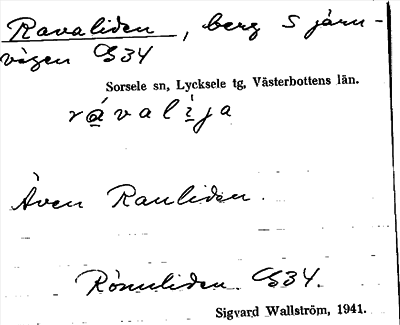 Ravaliden, berg S järn-
vägen CS34
Sorsele sn, Lycksele tg, Västerbottens län.
Även Rauliden.
CS34.
Sigvard Wallström, 1941.